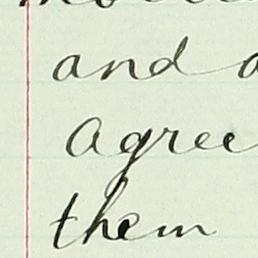 and
agree
them